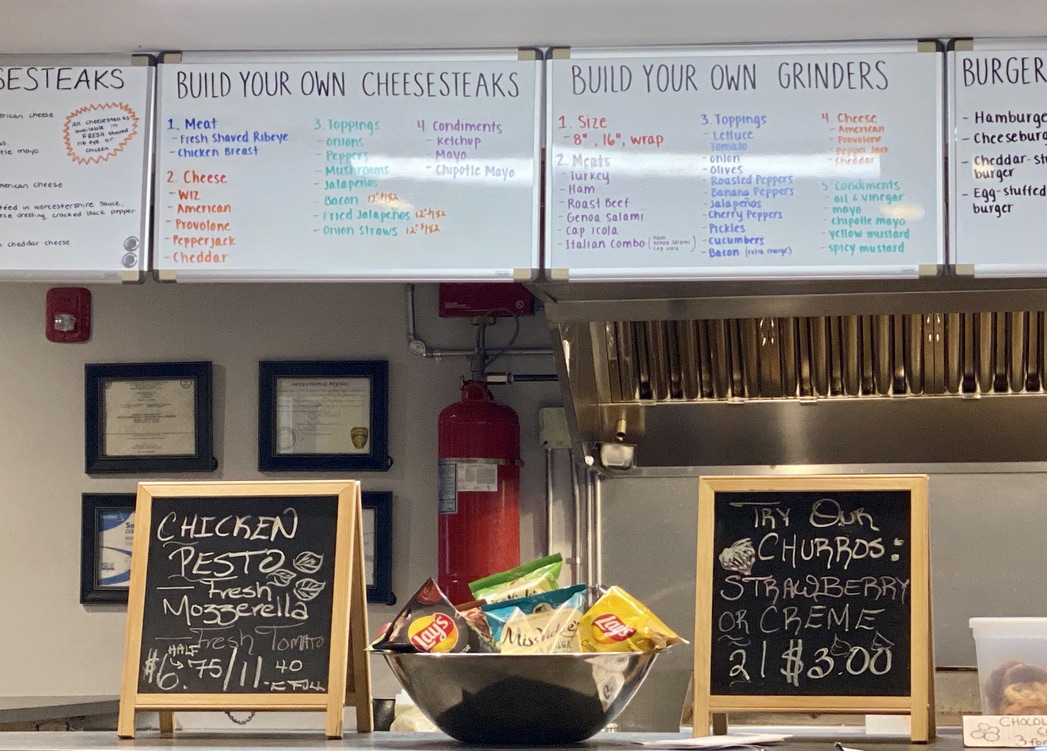 SESTEAKS
rican cheese
All cheesesteaks
available in
FRESH shaved
rib eye or
chicken
tle mayo
merican cheese
worcestershire sauce,
cracked black pepper
cheddar cheese
BUILD YOUR OWN CHEESESTEAKS
1. Meat
- Fresh Shaved Ribeye
- Chicken Breast
2. Cheese
- WIZ
- American
- Provolone
- Pepperjack
- Cheddar
3. Toppings
- Onions
- Peppers
- Mushrooms
- Jalapeños
- Bacon
- Fried Jalapeños
- Onion Straws
4 Condiments
- Ketchup
- Mayo
- Chipotle Mayo
BUILD YOUR OWN GRINDERS
1. Size
- 8", 16", wrap
2. Meats
- Turkey
- Ham
- Roast Beef
- Genoa Salami
- Capicola
- Italian Combo (Ham Genoa Salami Capicola)
3. Toppings
- Lettuce
- Tomato
- Onion
- Olives
- Roasted Peppers
- Banana Peppers
- Jalapeños
- Cherry Peppers
- Pickles
- Cucumbers
- Bacon (extra charge)
4 Cheese
- American
- Provolone
- Pepper Jack
- Cheddar
5 Condiments
- oil & vinegar
- mayo
- chipotle mayo
- yellow mustard
- spicy mustard
BURGER
- Hamburge
- Cheeseburg
- Cheddar-stu
burger
- Egg-stuffed
burger
OPERATIONAL PERMIT
CHICKEN
PESTO
Fresh
Mozzerella
Fresh Tomato
HALF
$6.75/11.40
FULL
Lay's
Miss Vickie's
Lay's
TRY OUR
CHURROS:
STRAWBERRY
OR CREME
2 | $3.00
CHOCOL
3 for